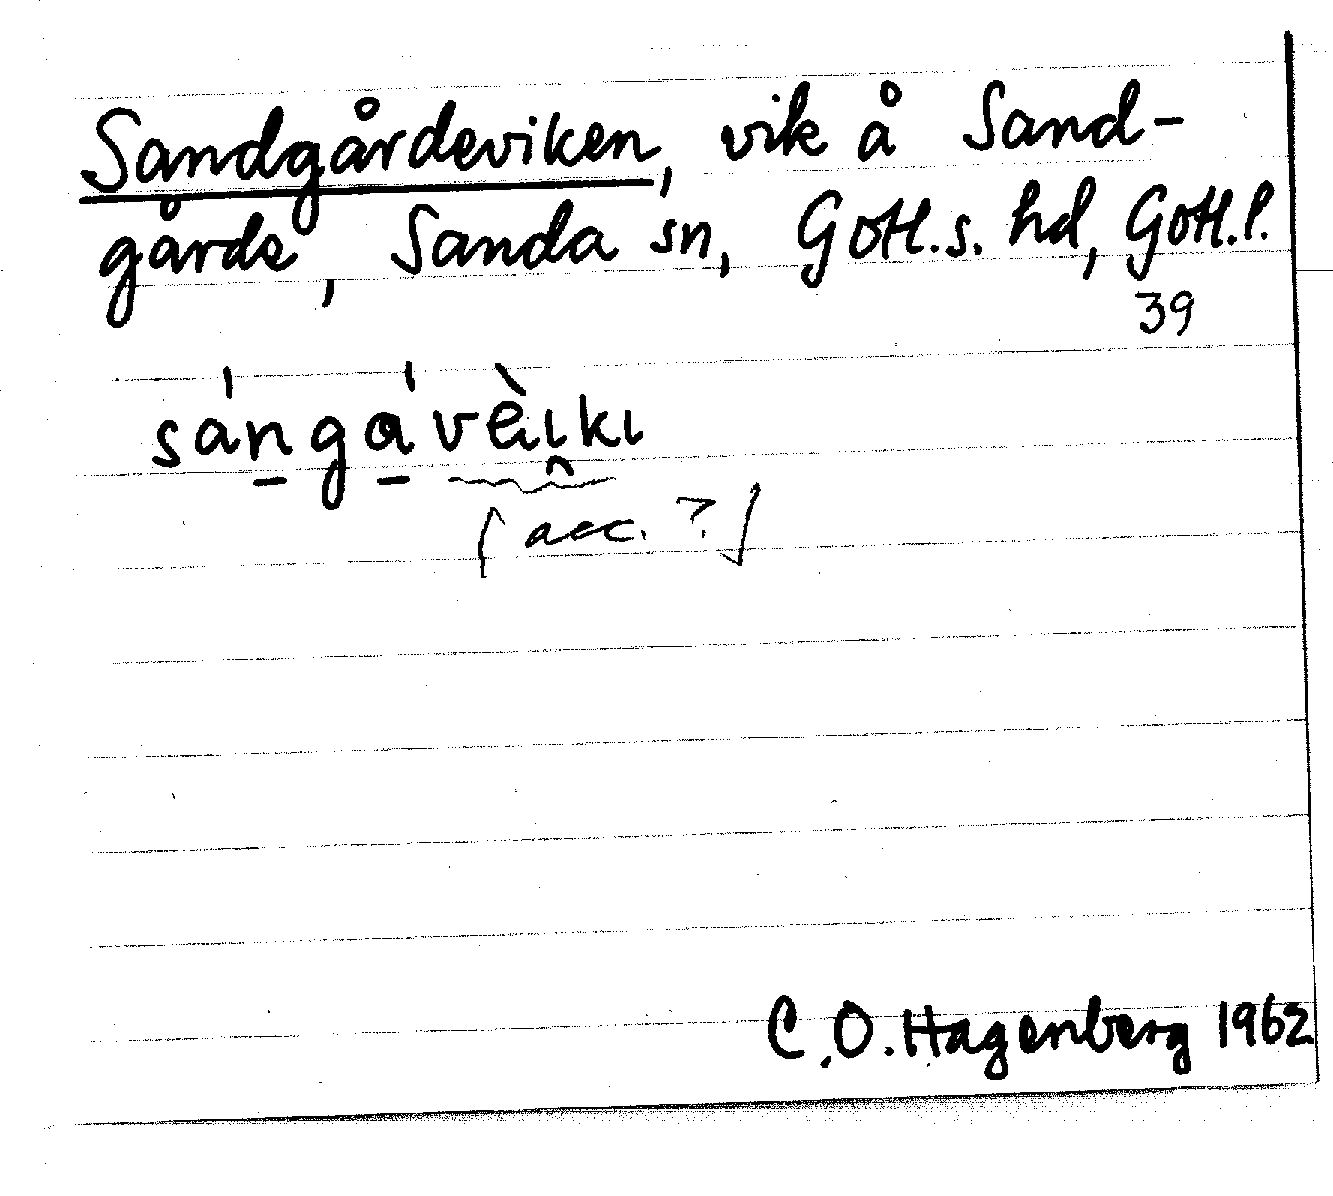 Sandgårdeviken, vik å Sand-
gårde, Sanda sn, Gotl.s. hd, Gotl.l.
39
sángávὲιkι
[acc. ?]
C.O. Hagenberg 1962